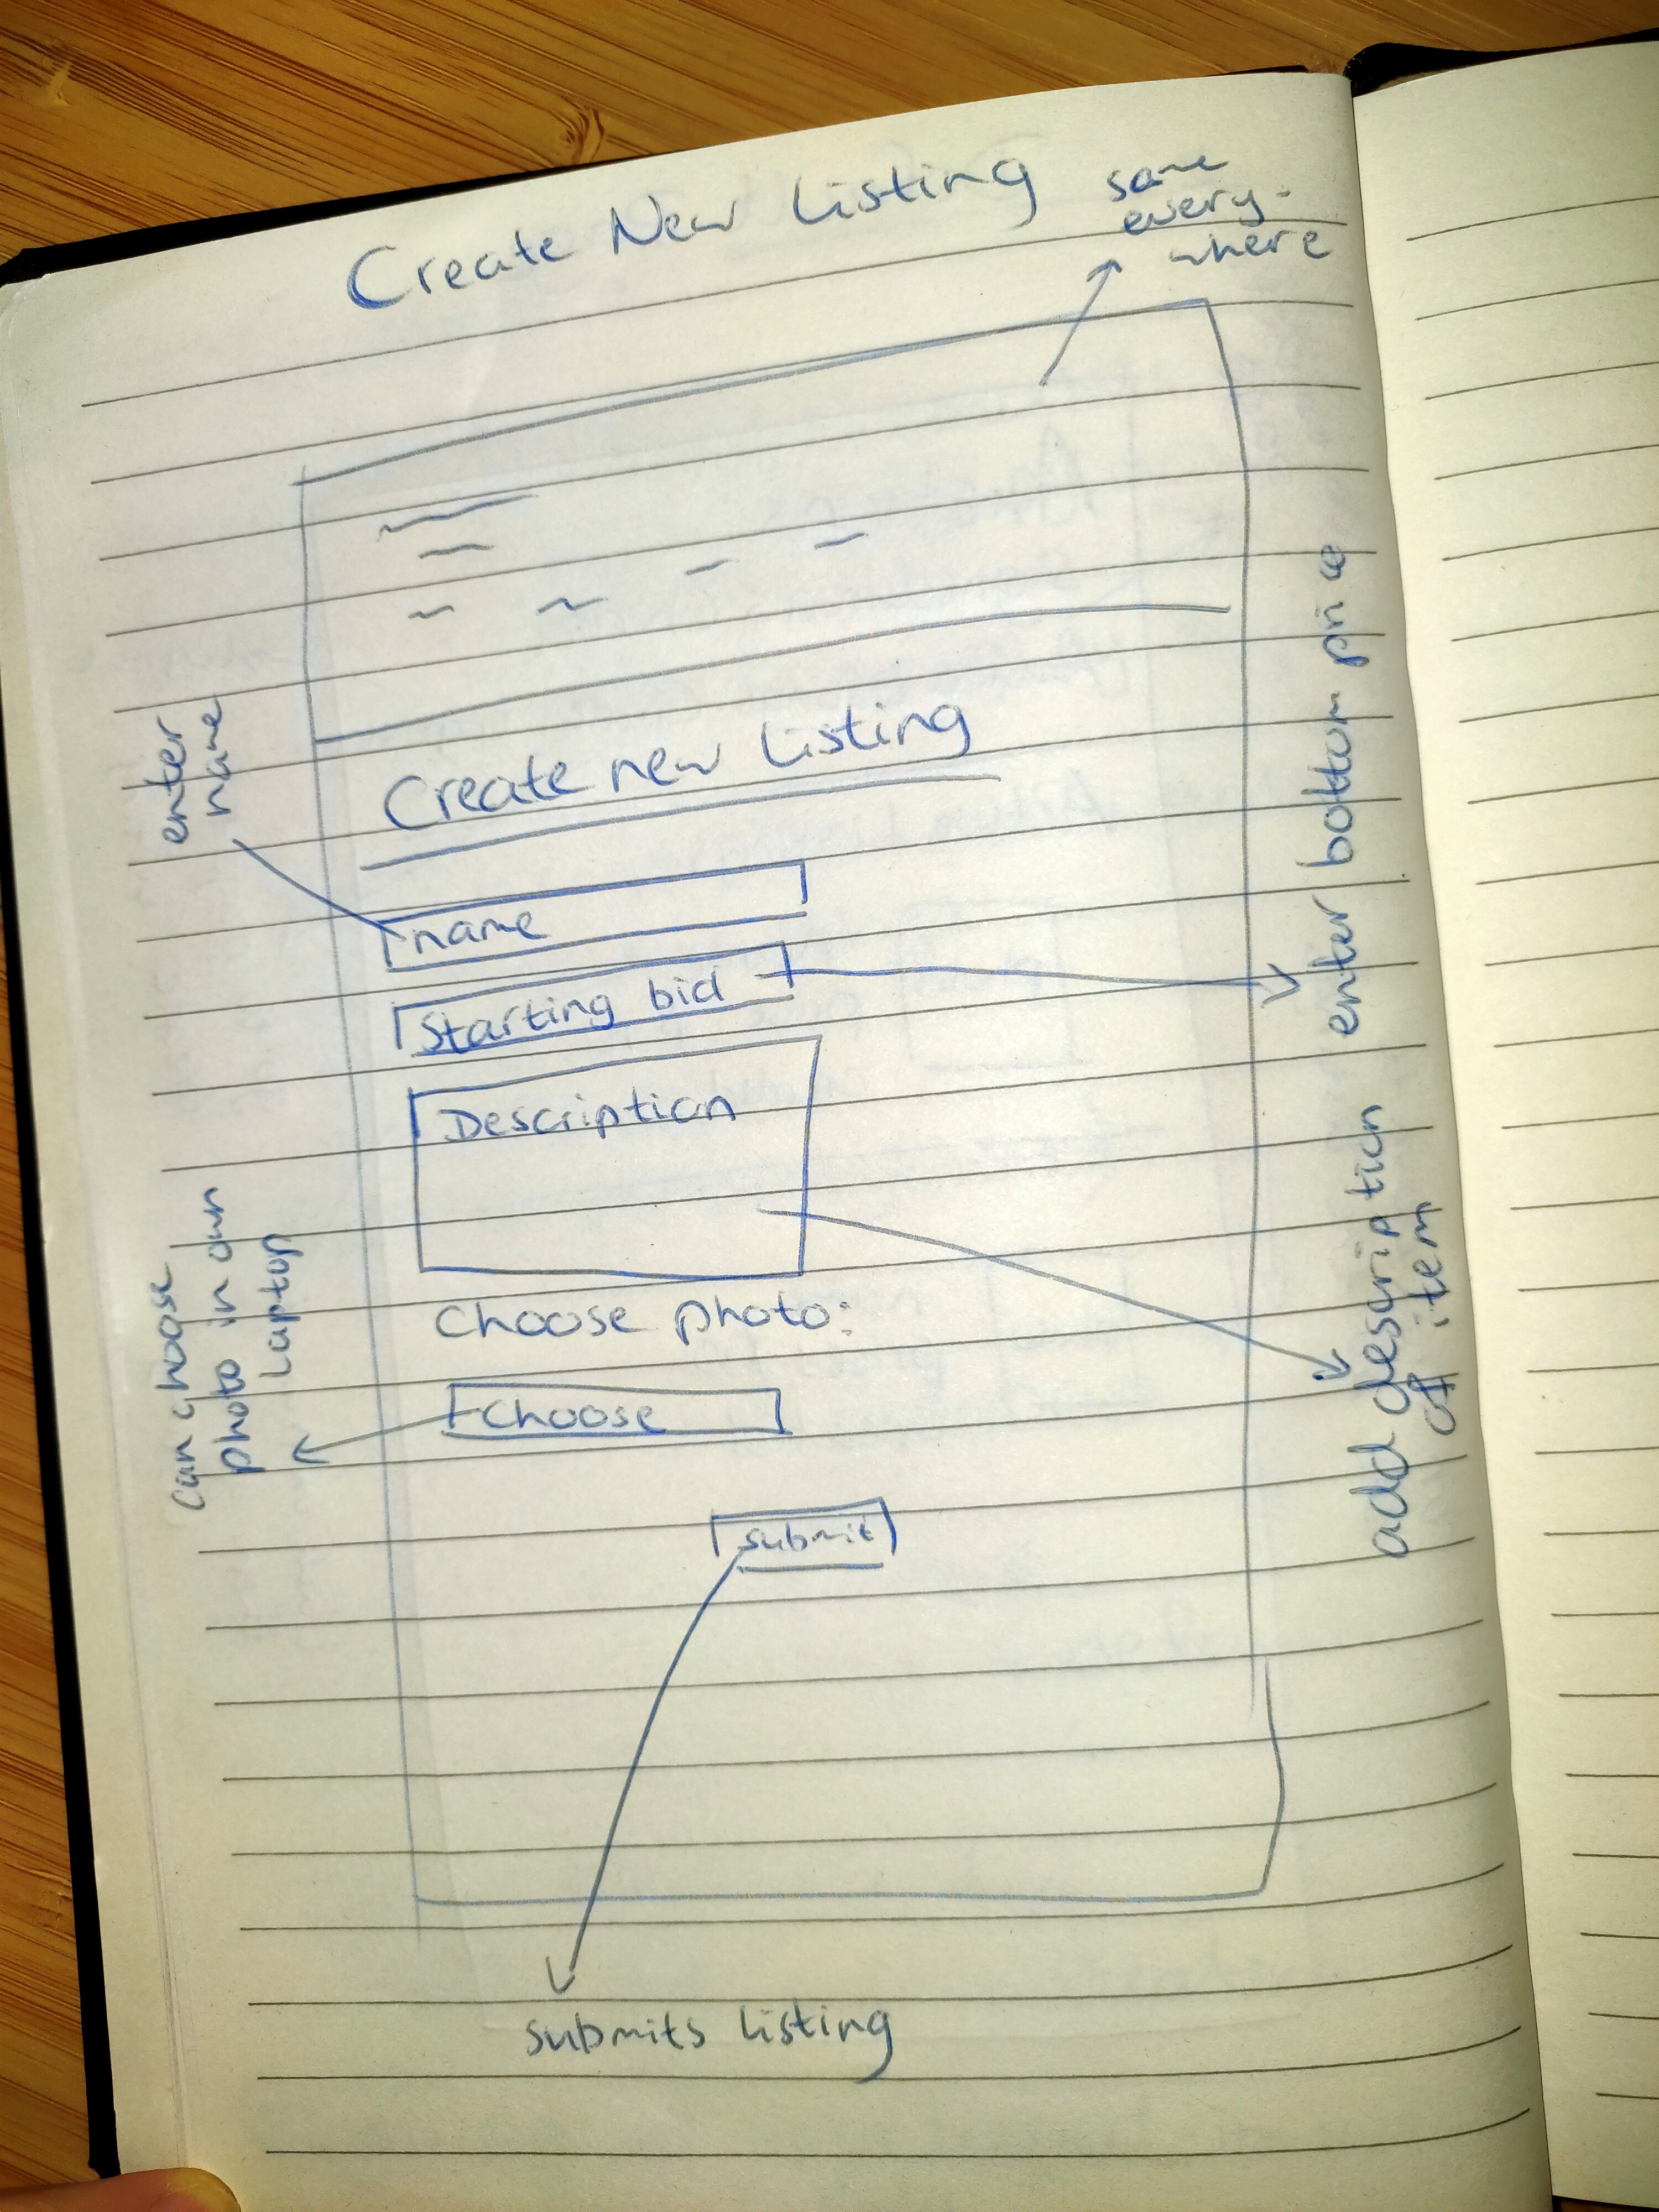 Create New Listing
same
every-
where
Create new listing
enter
name
name
Starting bid
enter bottom price
Description
add description
of item
choose photo:
choose
can choose
photo in own
laptop
submit
submits listing